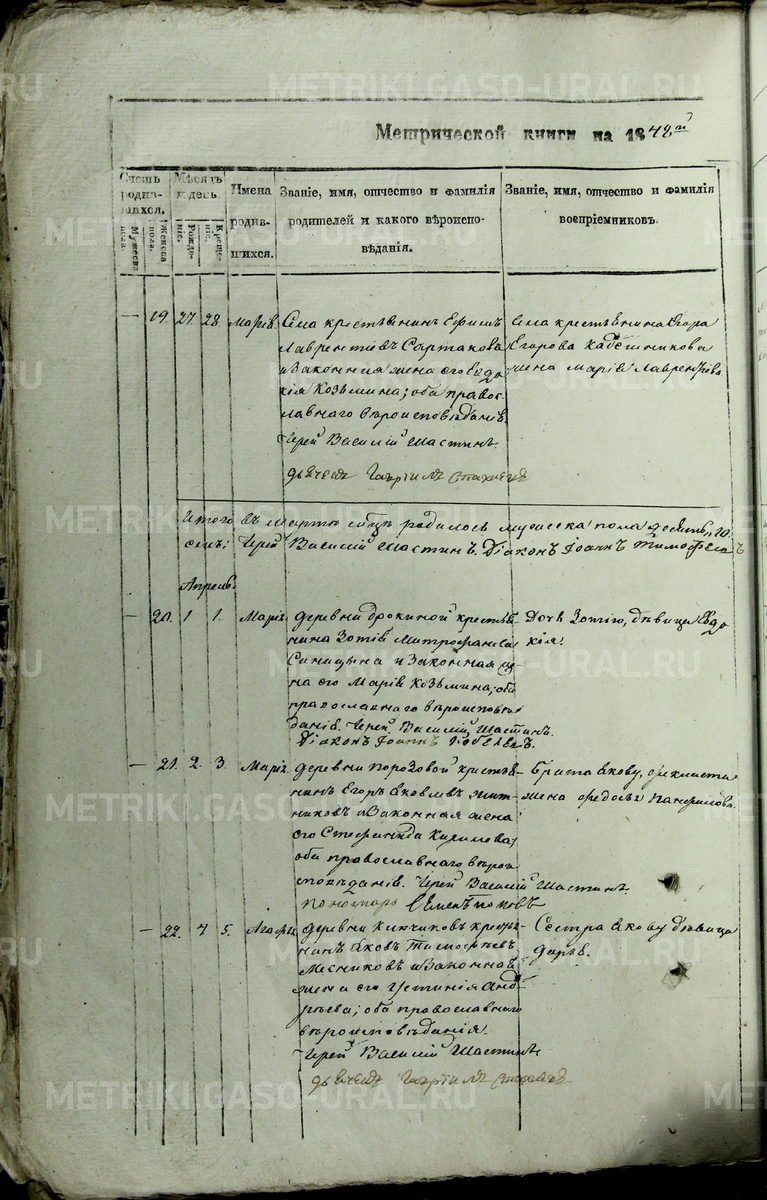 Метрической книги на 1848й
Счетъ родившихся.
Мужеска пола.
Женска пола.
Мѣсяцъ и день.
Рожденіе.
Крещеніе.
Имена родившихся.
Званіе, имя, отчество и фамилія родителей и какого вѣроисповѣданія.
Званіе, имя, отчество и фамилія воспріемниковъ.
— 19. 27. 28. Марія.
Села крестьянинъ Ефимъ
Лаврентіевъ Сартаковъ
и законная жена его Евдо
кія Козьмина; оба правос
лавнаго вѣроисповѣданія.
Іерей Василій Шастинъ.
Села крестьянина Егора
Егорова
жена Марія Лаврентьева
Итого въ мартѣ мѣцѣ родилось мужеска пола десять, 10.
Іерей Василій Шастинъ. Діаконъ Іоаннъ
Апрель
— 20. 1 1. Марія
деревни Дрокиной крестья
нина Зотія Митрофанова
Синицына и законная же
на его Марія Козьмина; оба
православнаго вѣроисповѣ
данія. Іерей Василій Шастинъ.
Діаконъ Іоаннъ
Дочь Зотію, дѣвица Евдо
кія.
— 21. 2. 3. Марія
деревни Порозовой крестья
нинъ Егоръ Яковлевъ Жит
никовъ и законная жена
его Стефанида Карпова;
оба православнаго вѣрои
сповѣданія. Іерей Василій Шастинъ.
пономарь
Брата Якову, Феклиста
жена Федосья Панфилова
— 22. 4 5. Агафья
деревни крестья
нинъ Яковъ Тимофеевъ
Месниковъ и законная
жена его Устинія Анд
рѣева; оба православнаго
вѣроисповѣданія.
Іерей Василій Шастинъ
Сестра Якову дѣвица
Дарья.
METRIKI.GASO-URAL.RU